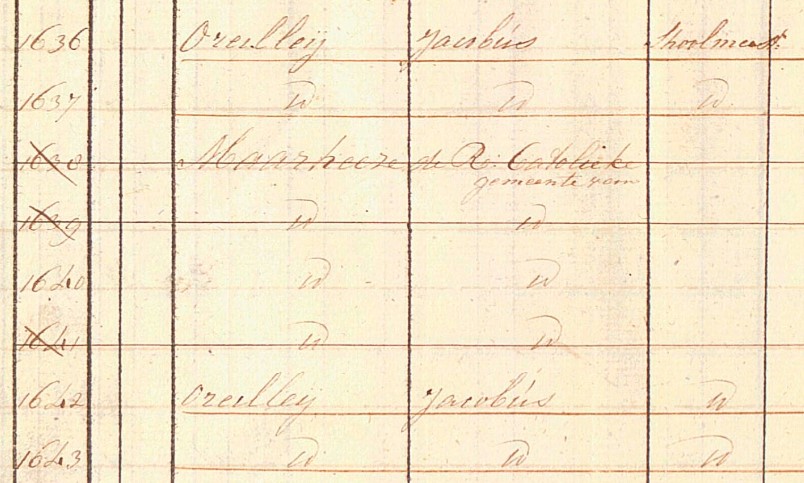 1636 Oreilleij Jacobus Schoolmeestr
1637 id id id
1638 Maarheeze de Ro: Catolieke
gemeente van
1639 id id
1640 id id
1641 id id
1642 Oreilleij Jacobus id
1643 id id id